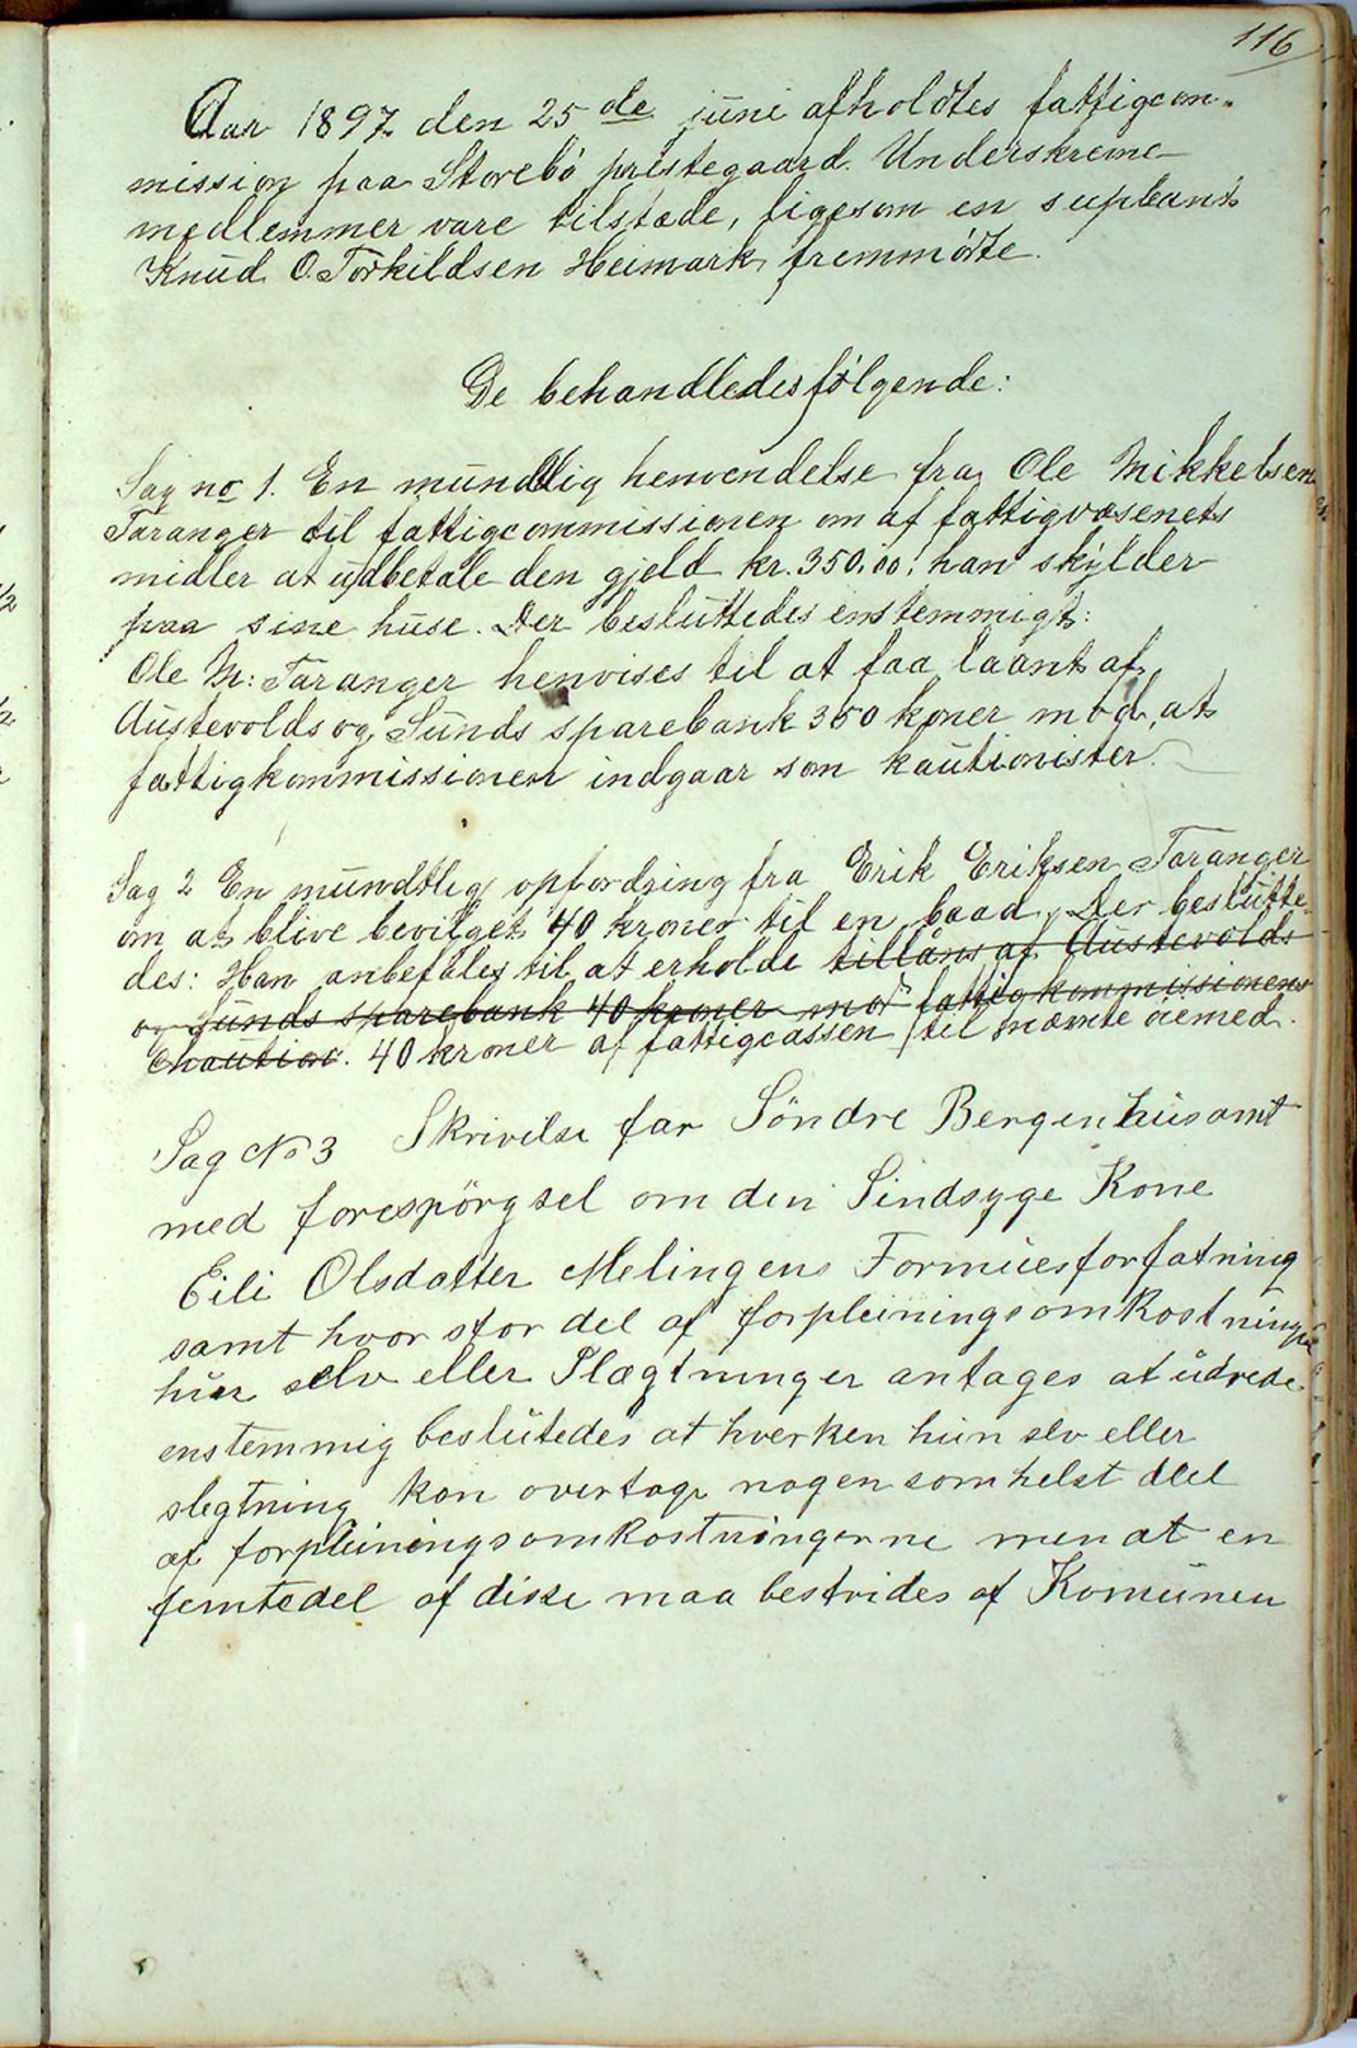 116
Aar 1897 den 25de juni afholdtes fattigcom-
mission paa Storebö prestegaard. Underskrevne
medlemmer vare tilstæde, ligesom en supleant
Knud O. Torkildsen Heimark fremmödte.
De behandledes fölgende:
Sag no 1. En mundtlig henvendelse fra Ole Mikkelsen
Taranger til fattigcommissionen om af fattigvæsenets
midler at udbetale den gjeld kr. 350,00, han skylder
paa sine huse. Der besluttedes enstemmigt:
Ole M: Taranger henvises til at faa laant af
Austevolds og Sunds sparebank 350 kroner mod, at
fattigkommissionen indgaar som kautionister.
Sag 2 En mundtlig opfordring fra Erik Eriksen Taranger
om at blive bevilget 40 kroner til en baad. Der beslutte-
des: Han anbefales til at erholde tillåns af Austevolds
og Sunds sparebank 40 kroner mod fattigkommissionens
chaution. 40 kroner af fattigcassen til nævnte öiemed.
Sag No 3 Skrivelse far Söndre Bergenhusamt
med forespörgsel om den Sindsyge Kone
Eili Olsdatter Melingens Formuesforfatning
samt hvor stor del af forpleiningsomkostninger
hun selv eller Slægtninger antages at udrede
enstemmig beslutedes at hverken hun selv eller
slegtning kan overtage nogensomhelst deel
af forpleiningsomkostningerne men at en
femtedel af disse maa bestrides af Komunen